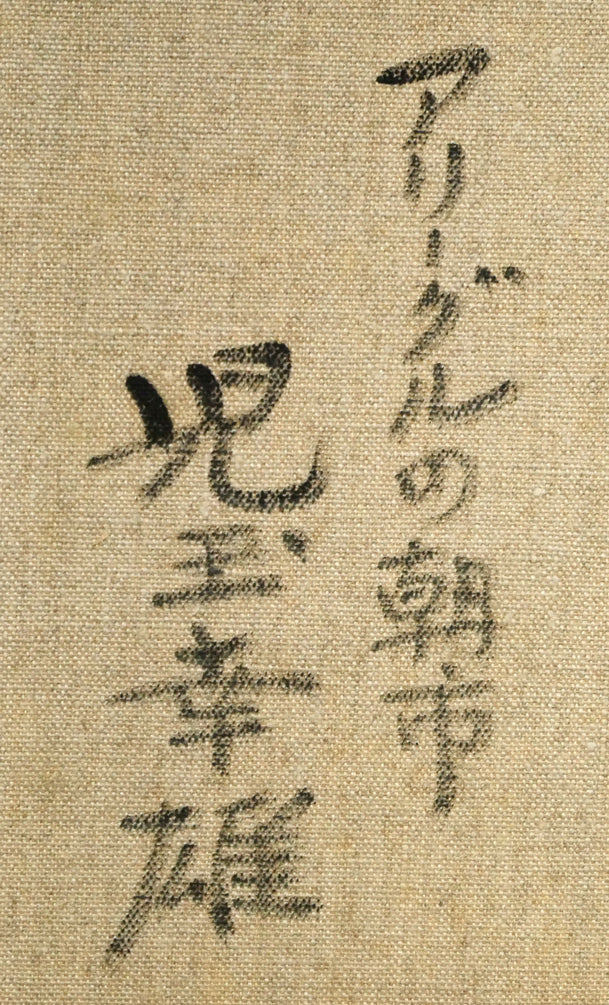 アリーグルの朝市
児玉幸雄